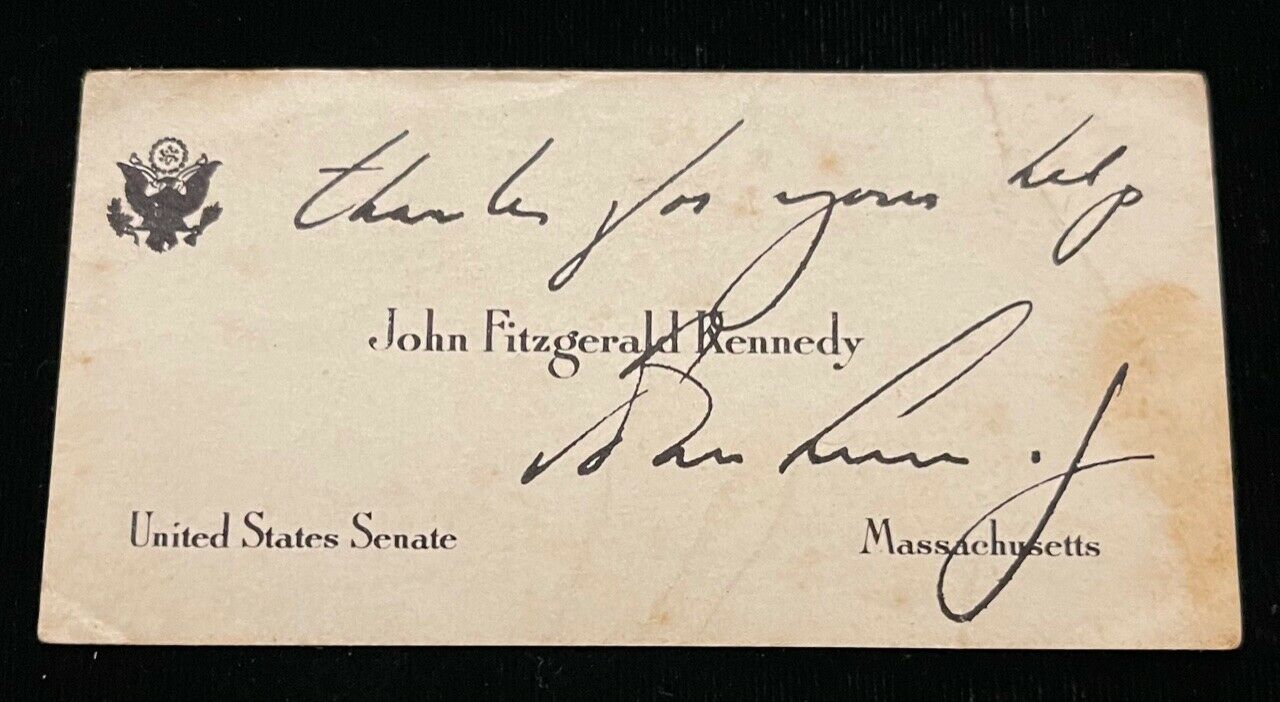 thanks for your help
John Fitzgerald Kennedy
John Kennedy
United States Senate
Massachusetts